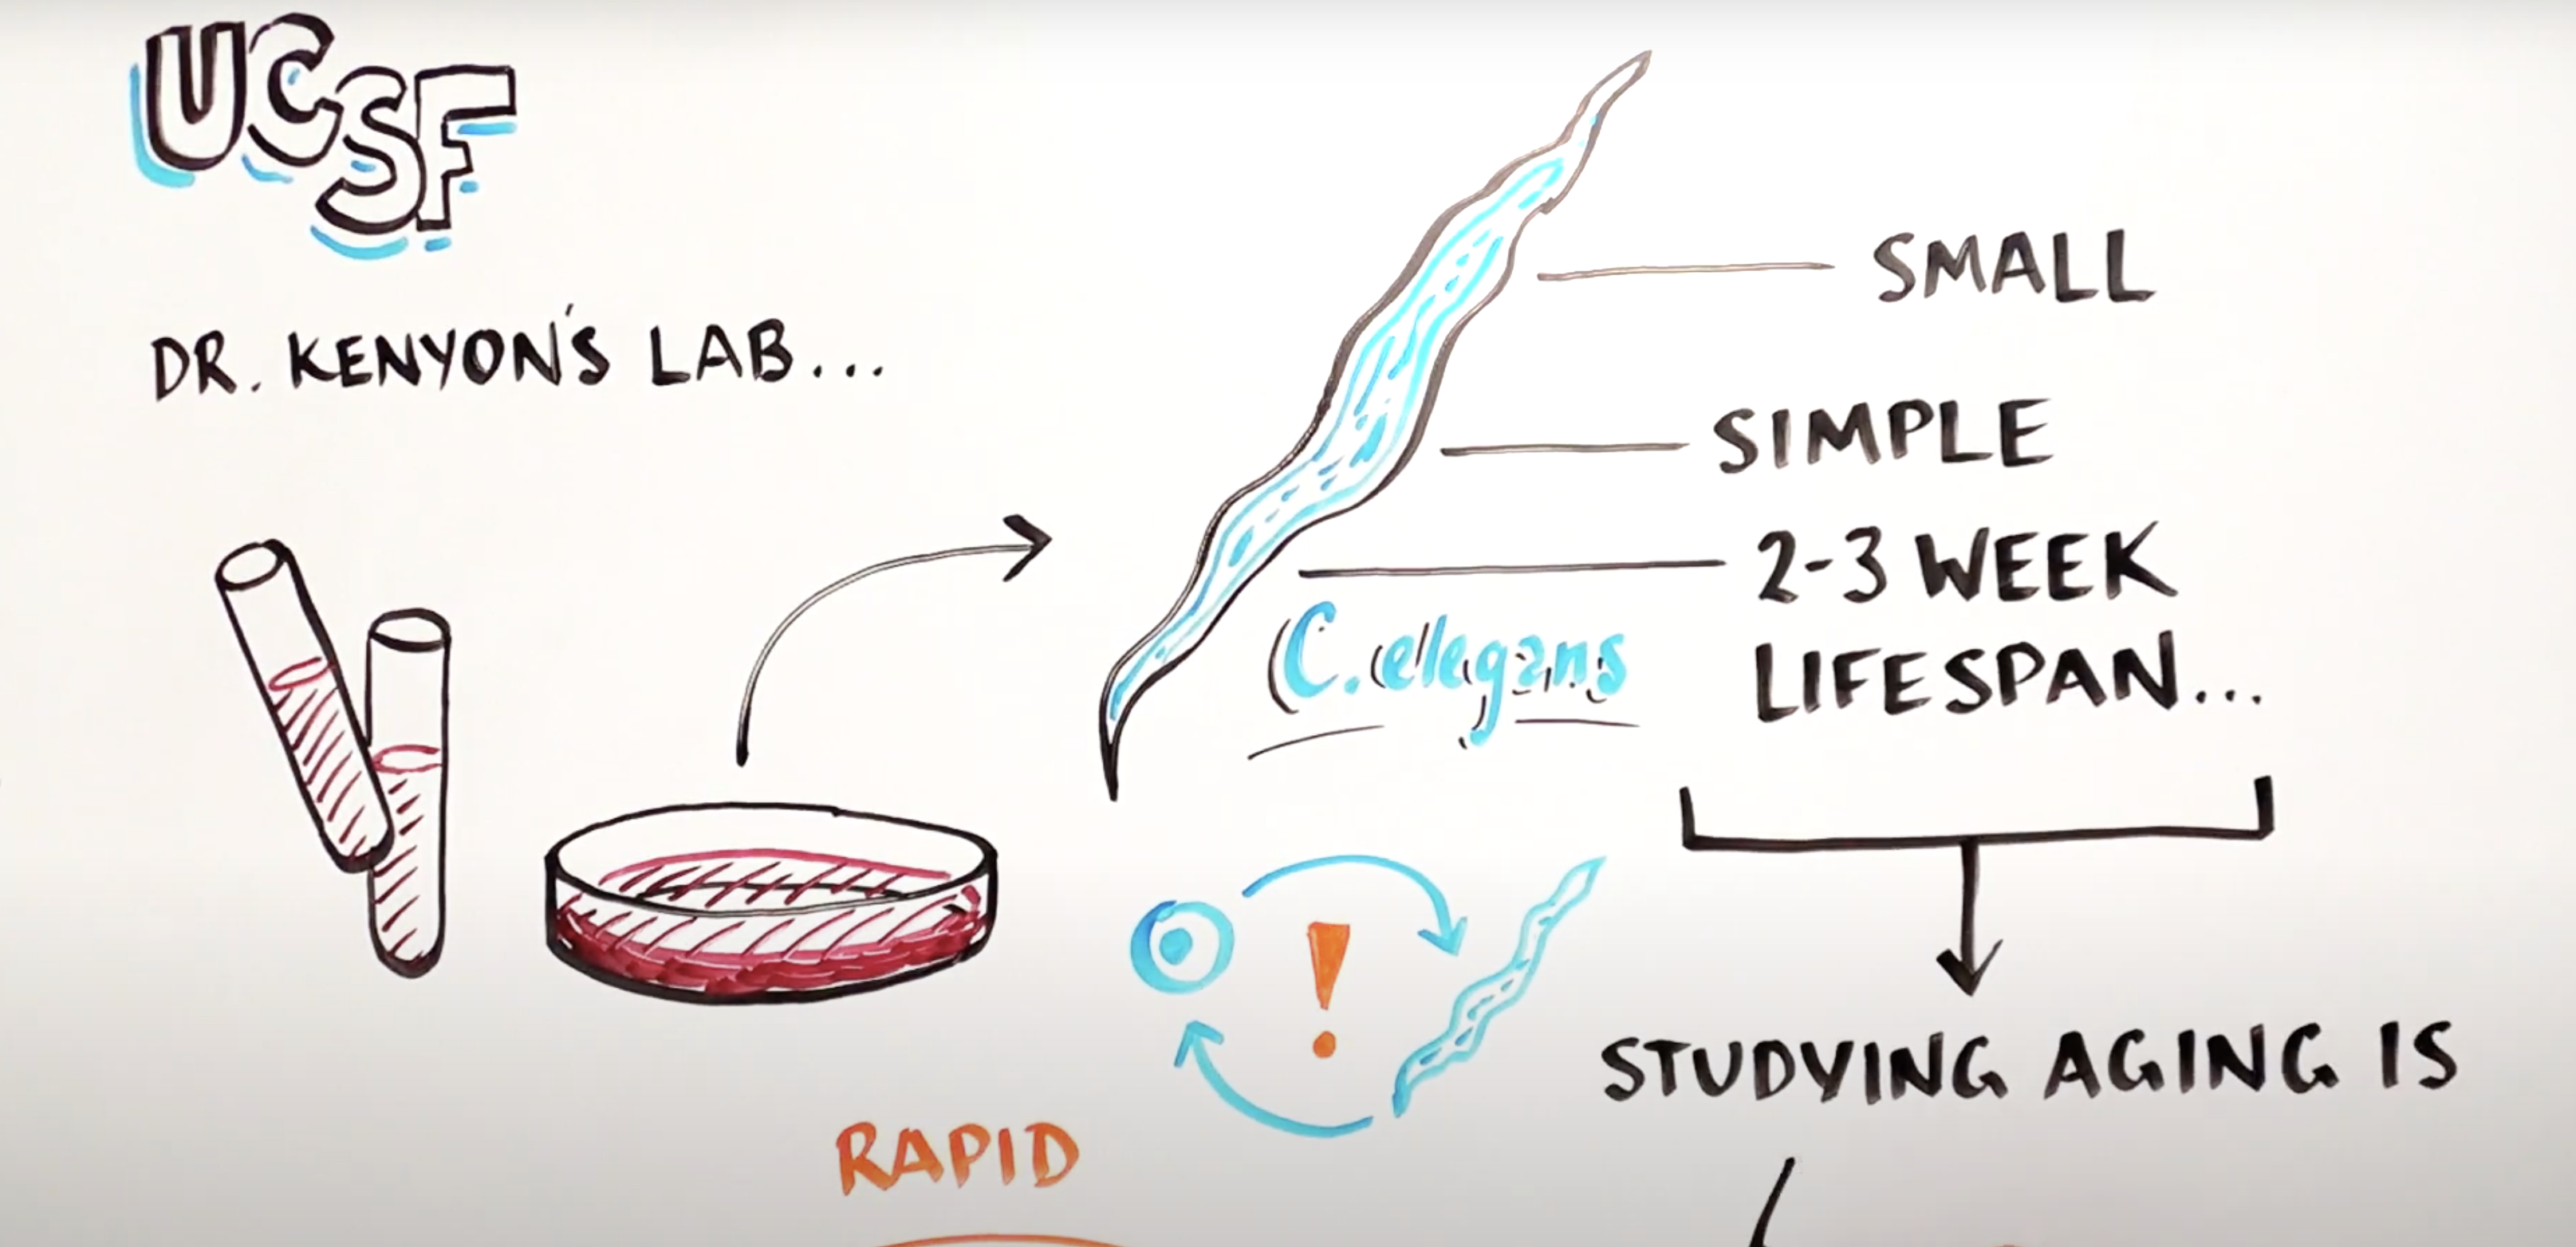 UCSF
DR. KENYON'S LAB...
SMALL
SIMPLE
2-3 WEEK
LIFESPAN...
C. elegans
!
STUDYING AGING IS
RAPID